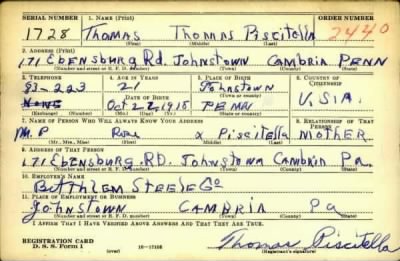 SERIAL NUMBER 1. NAME (Print) ORDER NUMBER
1728 Thomas Thomas Piscitella 2440
(First) (Middle) (Last)
2. ADDRESS (Print)
171 Ebensburg Rd. Johnstown Cambria Penn
(Number and street or R. F. D. number) (Town) (County) (State)
3. TELEPHONE 4. AGE IN YEARS 5. PLACE OF BIRTH 6. COUNTRY OF CITIZENSHIP
83-223 Johnstown
(Town or county)
DATE OF BIRTH U.S.A.
Oct 22, 1918 Penn
(Exchange) (Number) (Mo.) (Day) (Yr.) (State or country)
7. NAME OF PERSON WHO WILL ALWAYS KNOW YOUR ADDRESS 8. RELATIONSHIP OF THAT PERSON
Piscitella Mother
(Mr., Mrs., Miss) (First) (Middle) (Last)
9. ADDRESS OF THAT PERSON
171 Ebensburg. RD. Johnstown Cambria Pa.
(Number and street or R. F. D. number) (Town) (County) (State)
10. EMPLOYER'S NAME
Bethlem Steele Co
11. PLACE OF EMPLOYMENT OR BUSINESS
Johnstown Cambria Pa
(Number and street or R. F. D. number) (Town) (County) (State)
I AFFIRM THAT I HAVE VERIFIED ABOVE ANSWERS AND THAT THEY ARE TRUE.
REGISTRATION CARD
D. S. S. Form 1 (over) 16-17105 Thomas Piscitella
(Registrant's signature)